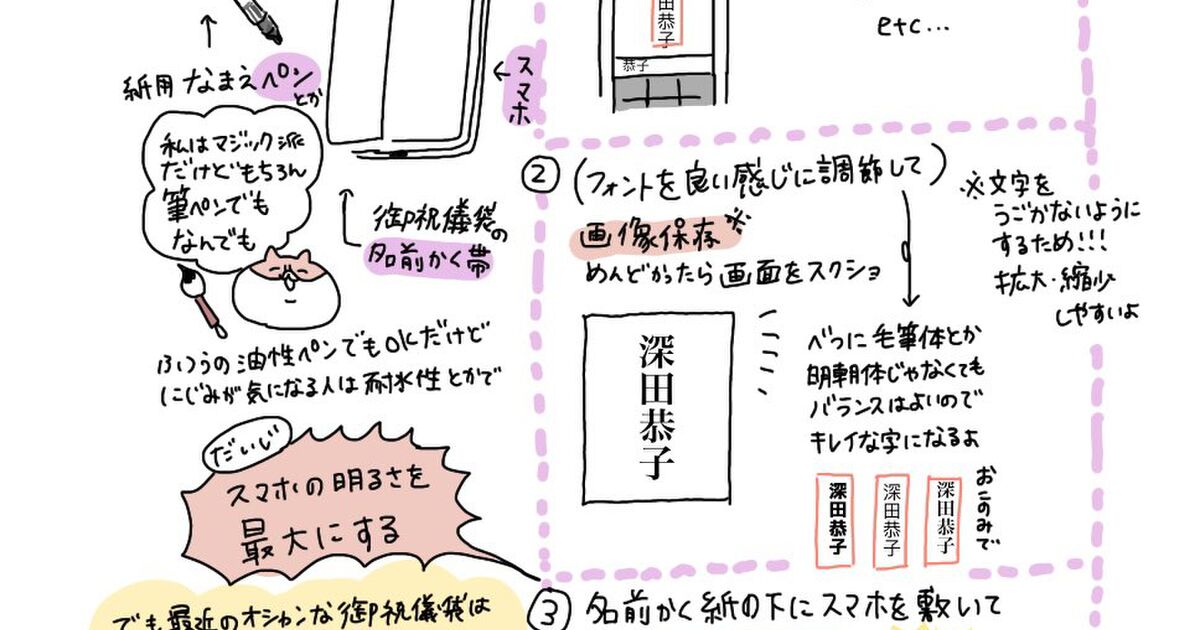 紙用 なまえペン
とか
スマホ
私はマジック派
だけどもちろん
筆ペンでも
なんでも
御祝儀袋の
名前かく帯
ふつうの油性ペンでもOKだけど
にじみが気になる人は耐水性とかで
だいじ
スマホの明るさを
最大にする
でも最近のオシャンな御祝儀袋は
田恭子
恭子
etc...
② (フォントを良い感じに調節して)
画像保存※
めんどかったら画面をスクショ
※文字を
うごかないように
するため!!!
拡大・縮小
しやすいよ
深田恭子
べつに毛筆体とか
明朝体じゃなくても
バランスはよいので
キレイな字になるよ
深田恭子
深田恭子
深田恭子
おこのみで
③ 名前かく紙の下にスマホを敷いて